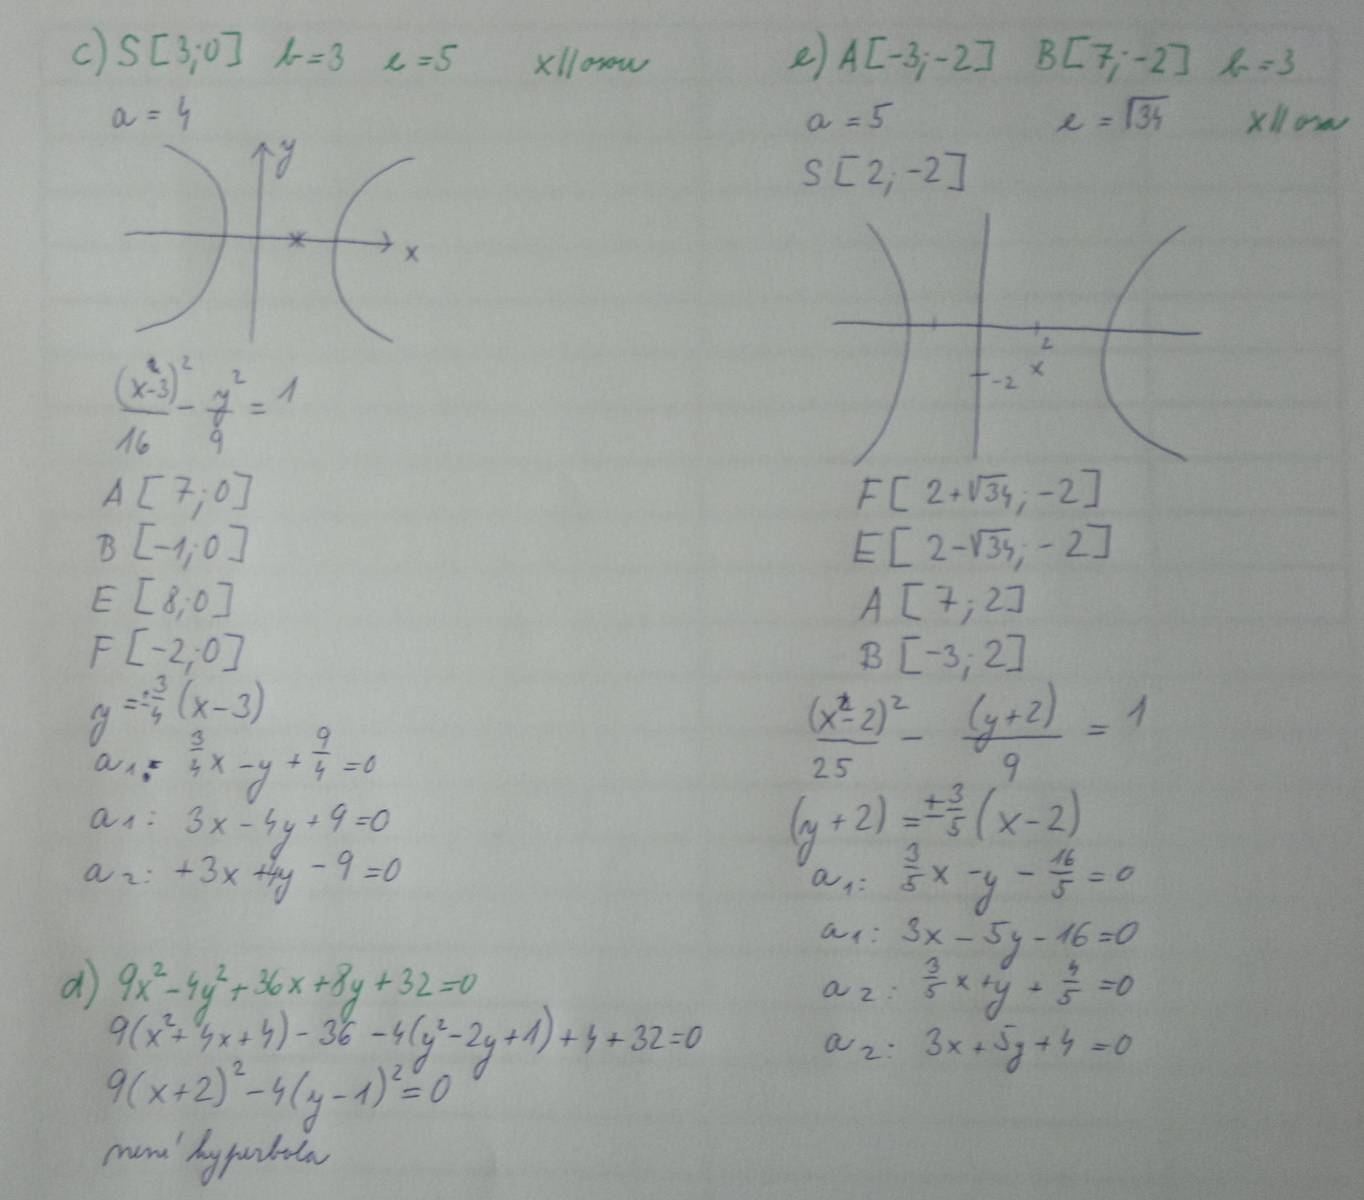 c) S[3;0] b=3 e=5 x||osou
a = 4
y
x
(x-3)²/16 - y²/9 = 1
A [7;0]
B [-1;0]
E [8;0]
F [-2;0]
y = ±3/4 (x-3)
a₁: 3/4 x - y + 9/4 = 0
a₁: 3x - 4y + 9 = 0
a₂: +3x + 4y - 9 = 0
d) 9x² - 4y² + 36x + 8y + 32 = 0
9(x² + 4x + 4) - 36 - 4(y² - 2y + 1) + 4 + 32 = 0
9(x+2)² - 4(y-1)² = 0
není hyperbola
e) A[-3;-2] B[7;-2] b=3
a = 5 e = √34 x||osa
S [2;-2]
2
x
-2
F[2+√34;-2]
E[2-√34;-2]
A [7;2]
B [-3;2]
(x-2)²/25 - (y+2)/9 = 1
(y+2) = ±3/5 (x-2)
a₁: 3/5 x - y - 16/5 = 0
a₁: 3x - 5y - 16 = 0
a₂: 3/5 x + y + 4/5 = 0
a₂: 3x + 5y + 4 = 0